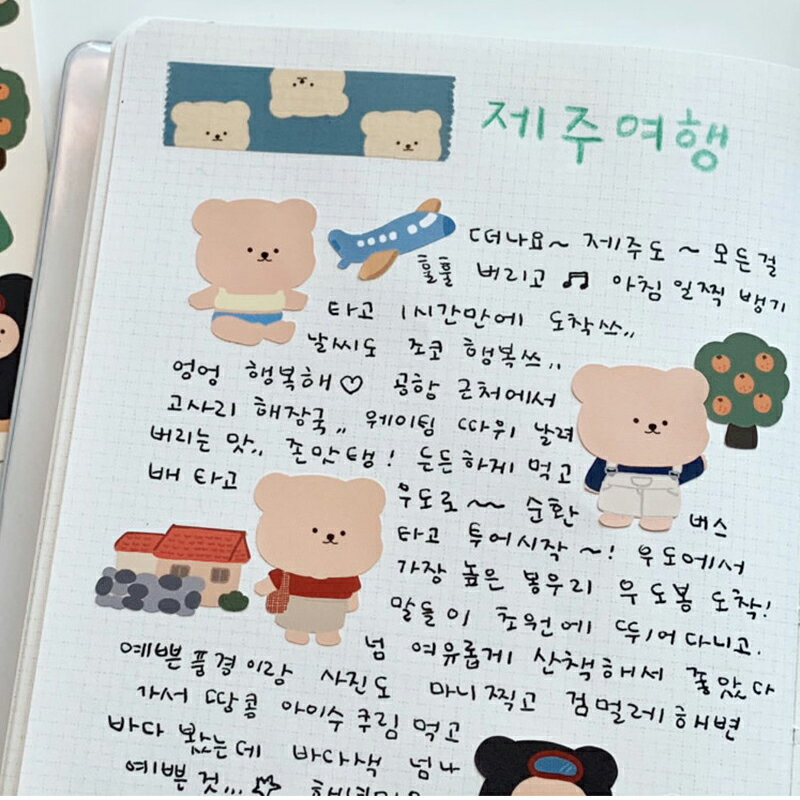 제주여행
떠나요~ 제주도 ~ 모든걸
훌훌 버리고 ♫ 아침 일찍 뱅기
타고 1시간만에 도착쓰,,
날씨도 조코 행복쓰,,
엉엉 행복해♡ 공항 근처에서
고사리 해장국,, 웨이팅 따위 날려
버리는 맛,, 존맛탱! 든든하게 먹고
배 타고 우도로 ~~ 순환 버스
타고 투어시작 ~! 우도에서
가장 높은 봉우리 우도봉 도착!
말들이 초원에 뛰어다니고.
넘 여유롭게 산책해서 좋았다
예쁜 풍경이랑 사진도 마니 찍고 검멀레해변
가서 땅콩 아이수쿠림 먹고
바다 봤는데 바다색 넘나
예쁜 것...